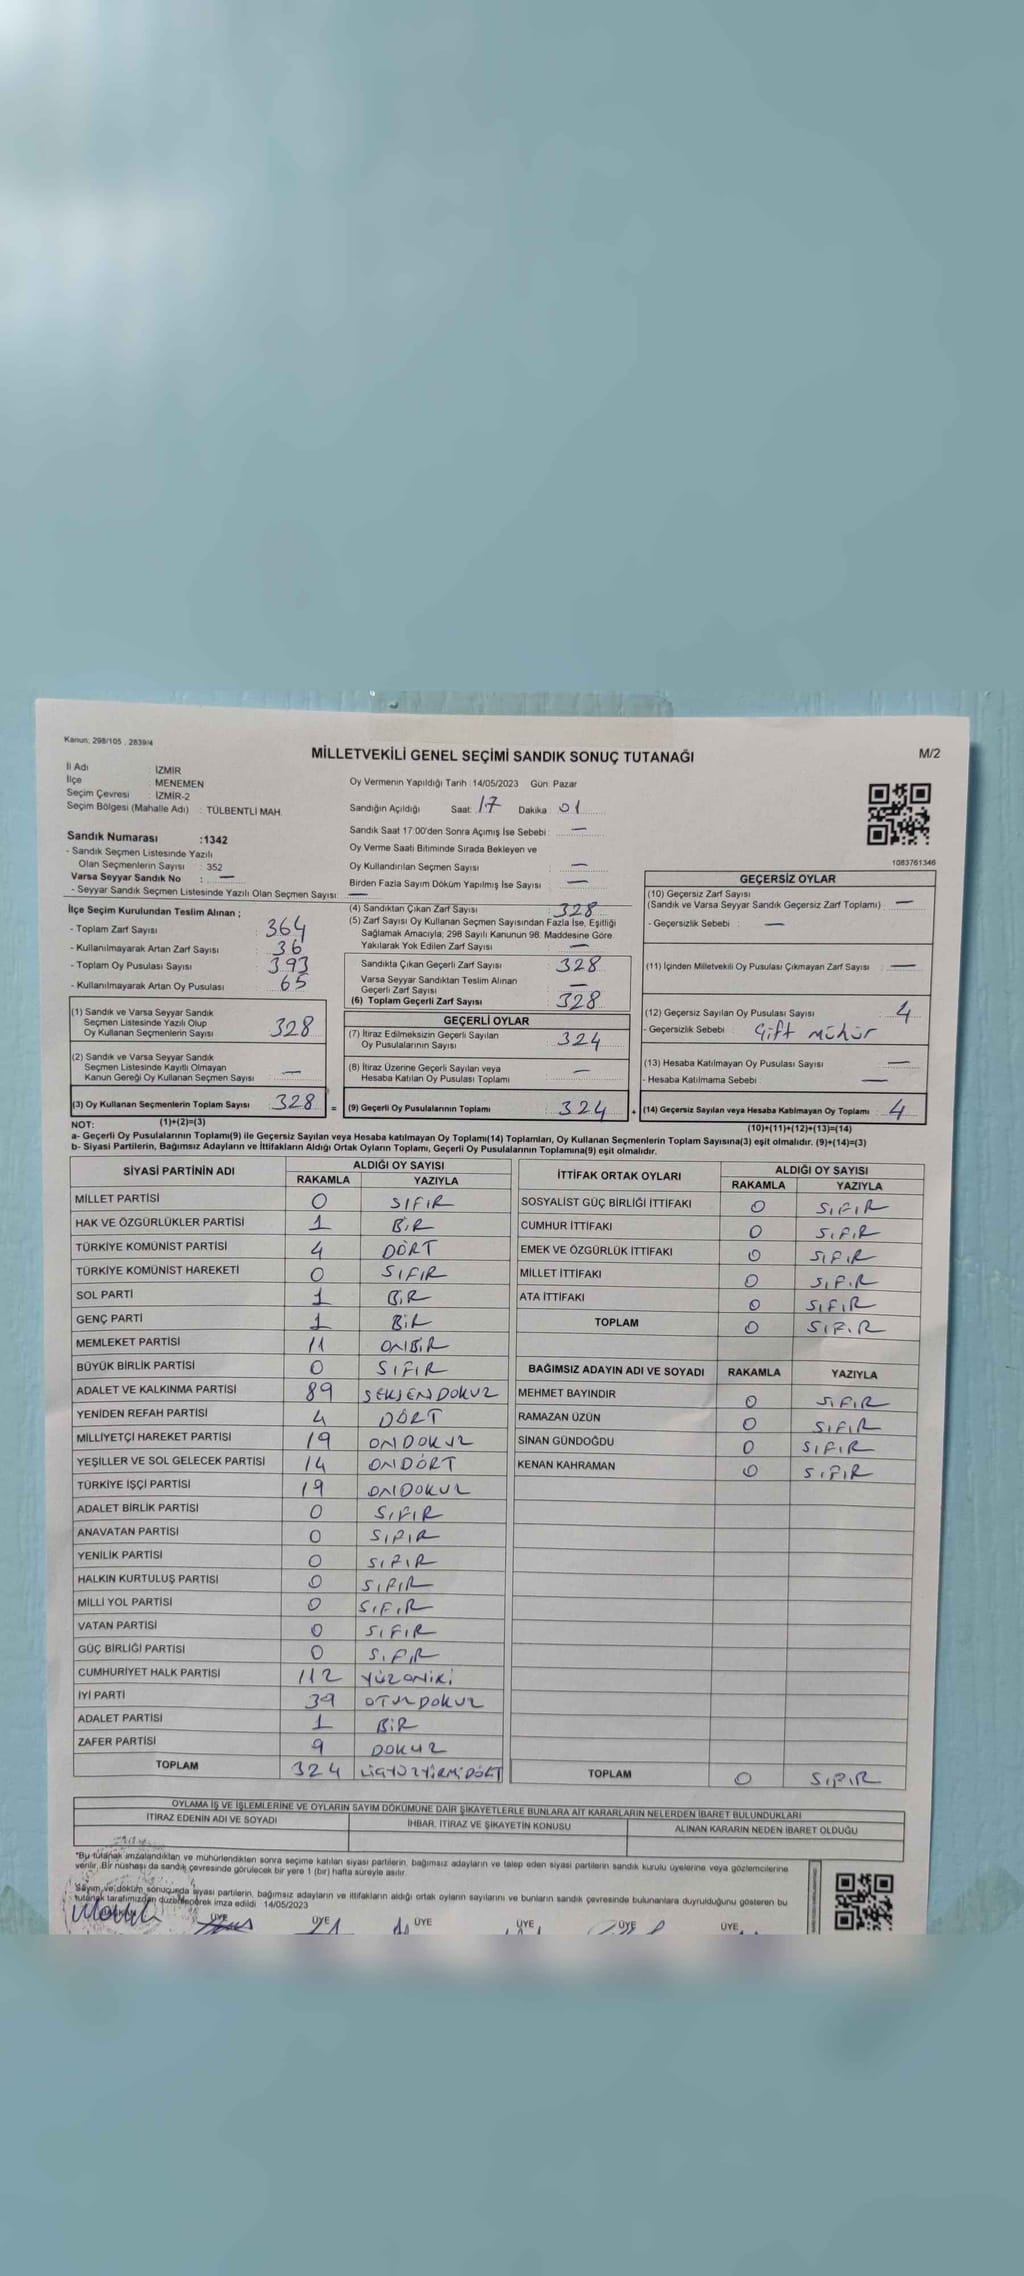 Kanun: 298/105 , 2839/4
MİLLETVEKİLİ GENEL SEÇİMİ SANDIK SONUÇ TUTANAĞI
M/2
İl Adı : İZMİR
İlçe : MENEMEN
Seçim Çevresi : İZMİR-2
Seçim Bölgesi (Mahalle Adı) : TÜLBENTLİ MAH.
Oy Vermenin Yapıldığı Tarih :14/05/2023 Gün: Pazar
Sandığın Açıldığı Saat: 17 Dakika: 01
Sandık Saat 17:00'den Sonra Açılmış İse Sebebi : —
Oy Verme Saati Bitiminde Sırada Bekleyen ve
Oy Kullandırılan Seçmen Sayısı : —
Birden Fazla Sayım Döküm Yapılmış İse Sayısı : —
1083761346
Sandık Numarası :1342
- Sandık Seçmen Listesinde Yazılı
Olan Seçmenlerin Sayısı : 352
Varsa Seyyar Sandık No : —
- Seyyar Sandık Seçmen Listesinde Yazılı Olan Seçmen Sayısı: —
İlçe Seçim Kurulundan Teslim Alınan ;
- Toplam Zarf Sayısı : 364
- Kullanılmayarak Artan Zarf Sayısı : 36
- Toplam Oy Pusulası Sayısı : 393
- Kullanılmayarak Artan Oy Pusulası : 65
(1) Sandık ve Varsa Seyyar Sandık
Seçmen Listesinde Yazılı Olup
Oy Kullanan Seçmenlerin Sayısı : 328
(2) Sandık ve Varsa Seyyar Sandık
Seçmen Listesinde Kayıtlı Olmayan
Kanun Gereği Oy Kullanan Seçmen Sayısı : —
(3) Oy Kullanan Seçmenlerin Toplam Sayısı : 328 =
(1)+(2)=(3)
(4) Sandıktan Çıkan Zarf Sayısı : 328
(5) Zarf Sayısı Oy Kullanan Seçmen Sayısından Fazla İse, Eşitliği
Sağlamak Amacıyla; 298 Sayılı Kanunun 98. Maddesine Göre
Yakılarak Yok Edilen Zarf Sayısı : —
Sandıkta Çıkan Geçerli Zarf Sayısı : 328
Varsa Seyyar Sandıktan Teslim Alınan
Geçerli Zarf Sayısı : —
(6) Toplam Geçerli Zarf Sayısı : 328
GEÇERLİ OYLAR
(7) İtiraz Edilmeksizin Geçerli Sayılan
Oy Pusulalarının Sayısı : 324
(8) İtiraz Üzerine Geçerli Sayılan veya
Hesaba Katılan Oy Pusulası Toplamı : —
(9) Geçerli Oy Pusulalarının Toplamı : 324 +
GEÇERSİZ OYLAR
(10) Geçersiz Zarf Sayısı
(Sandık ve Varsa Seyyar Sandık Geçersiz Zarf Toplamı) : —
- Geçersizlik Sebebi : —
(11) İçinden Milletvekili Oy Pusulası Çıkmayan Zarf Sayısı : —
(12) Geçersiz Sayılan Oy Pusulası Sayısı : 4
- Geçersizlik Sebebi : Çift mühür
(13) Hesaba Katılmayan Oy Pusulası Sayısı : —
- Hesaba Katılmama Sebebi : —
(14) Geçersiz Sayılan veya Hesaba Katılmayan Oy Toplamı : 4
(10)+(11)+(12)+(13)=(14)
NOT:
a- Geçerli Oy Pusulalarının Toplamı(9) ile Geçersiz Sayılan veya Hesaba katılmayan Oy Toplamı(14) Toplamları, Oy Kullanan Seçmenlerin Toplam Sayısına(3) eşit olmalıdır. (9)+(14)=(3)
b- Siyasi Partilerin, Bağımsız Adayların ve İttifakların Aldığı Ortak Oyların Toplamı, Geçerli Oy Pusulalarının Toplamına(9) eşit olmalıdır.
SİYASİ PARTİNİN ADI ALDIĞI OY SAYISI
RAKAMLA YAZIYLA
MİLLET PARTİSİ 0 SIFIR
HAK VE ÖZGÜRLÜKLER PARTİSİ 1 BİR
TÜRKİYE KOMÜNİST PARTİSİ 4 DÖRT
TÜRKİYE KOMÜNİST HAREKETİ 0 SIFIR
SOL PARTİ 1 BİR
GENÇ PARTİ 1 BİR
MEMLEKET PARTİSİ 11 ONBİR
BÜYÜK BİRLİK PARTİSİ 0 SIFIR
ADALET VE KALKINMA PARTİSİ 89 SEKSENDOKUZ
YENİDEN REFAH PARTİSİ 4 DÖRT
MİLLİYETÇİ HAREKET PARTİSİ 19 ONDOKUZ
YEŞİLLER VE SOL GELECEK PARTİSİ 14 ONDÖRT
TÜRKİYE İŞÇİ PARTİSİ 19 ONDOKUZ
ADALET BİRLİK PARTİSİ 0 SIFIR
ANAVATAN PARTİSİ 0 SIFIR
YENİLİK PARTİSİ 0 SIFIR
HALKIN KURTULUŞ PARTİSİ 0 SIFIR
MİLLİ YOL PARTİSİ 0 SIFIR
VATAN PARTİSİ 0 SIFIR
GÜÇ BİRLİĞİ PARTİSİ 0 SIFIR
CUMHURİYET HALK PARTİSİ 112 YÜZONİKİ
İYİ PARTİ 39 OTUZDOKUZ
ADALET PARTİSİ 1 BİR
ZAFER PARTİSİ 9 DOKUZ
TOPLAM 324 ÜÇYÜZYİRMİDÖRT
İTTİFAK ORTAK OYLARI ALDIĞI OY SAYISI
RAKAMLA YAZIYLA
SOSYALİST GÜÇ BİRLİĞİ İTTİFAKI 0 SIFIR
CUMHUR İTTİFAKI 0 SIFIR
EMEK VE ÖZGÜRLÜK İTTİFAKI 0 SIFIR
MİLLET İTTİFAKI 0 SIFIR
ATA İTTİFAKI 0 SIFIR
TOPLAM 0 SIFIR
BAĞIMSIZ ADAYIN ADI VE SOYADI RAKAMLA YAZIYLA
MEHMET BAYINDIR 0 SIFIR
RAMAZAN ÜZÜN 0 SIFIR
SİNAN GÜNDOĞDU 0 SIFIR
KENAN KAHRAMAN 0 SIFIR
TOPLAM 0 SIFIR
OYLAMA İŞ VE İŞLEMLERİNE VE OYLARIN SAYIM DÖKÜMÜNE DAİR ŞİKAYETLERLE BUNLARA AİT KARARLARIN NELERDEN İBARET BULUNDUKLARI
İTİRAZ EDENİN ADI VE SOYADI İHBAR, İTİRAZ VE ŞİKAYETİN KONUSU ALINAN KARARIN NEDEN İBARET OLDUĞU
"Bu tutanak imzalandıktan ve mühürlendikten sonra seçime katılan siyasi partilerin, bağımsız adayların ve talep eden siyasi partilerin sandık kurulu üyelerine veya gözlemcilerine
verilir. Bir nüshası da sandık çevresinde görülecek bir yere 1 (bir) hafta süreyle asılır.
Sayım ve döküm sonucunda siyasi partilerin, bağımsız adayların ve ittifakların aldığı ortak oyların sayılarını ve bunların sandık çevresinde bulunanlara duyrulduğunu gösteren bu
tutanak tarafımızdan düzenlenerek imza edildi 14/05/2023
ÜYE ÜYE ÜYE ÜYE ÜYE ÜYE